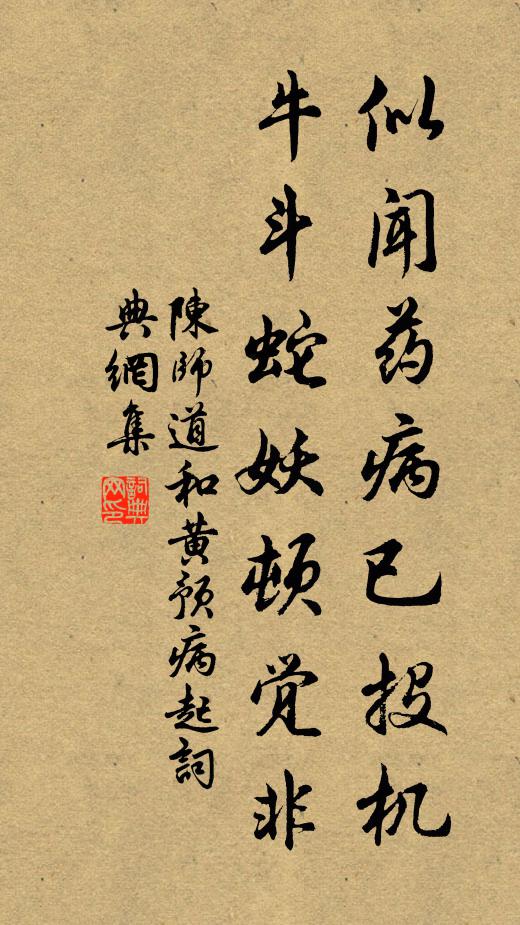 似闻药病已投机
牛斗蛇妖顿觉非
陳師道和黄预病起詞
典網集
詞典網印